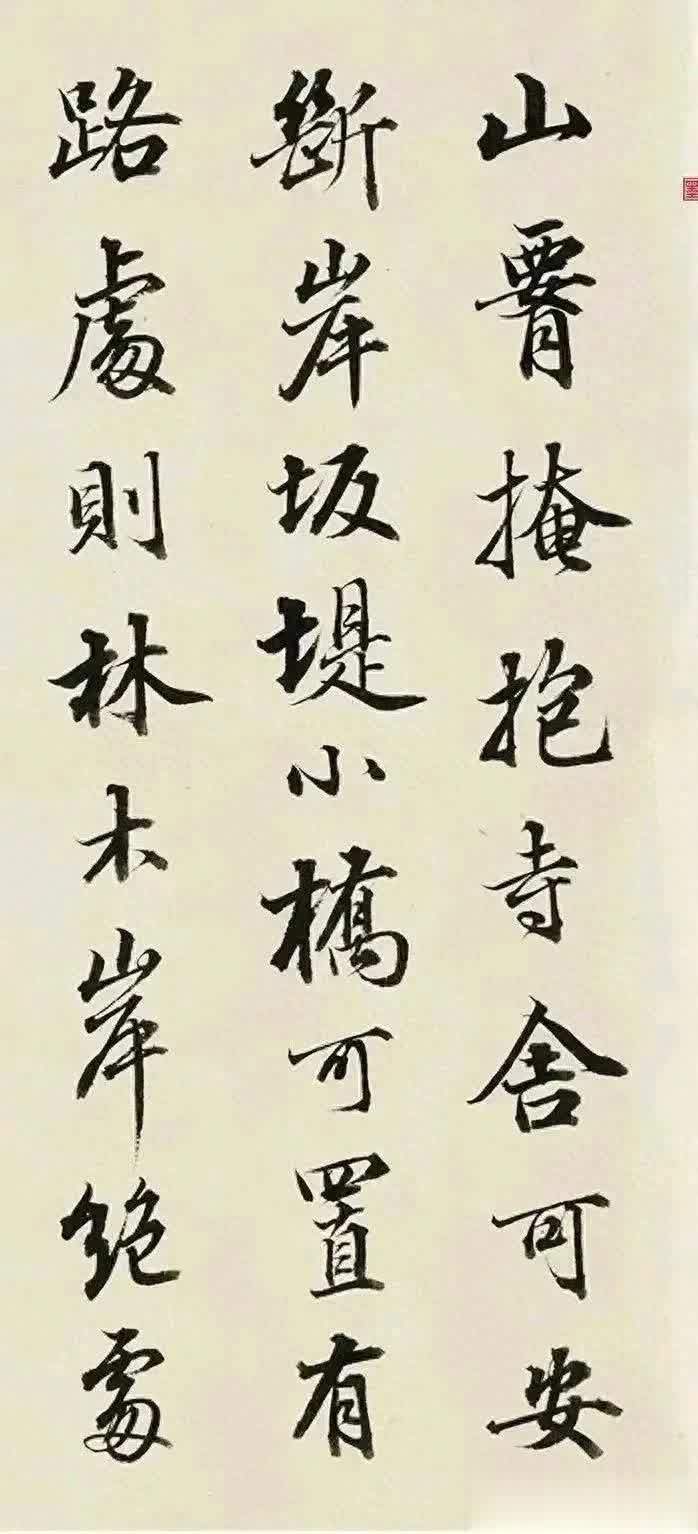 山腰掩抱寺舍可安
斷岸坂堤小橋可置有
路處則林木岸絶處